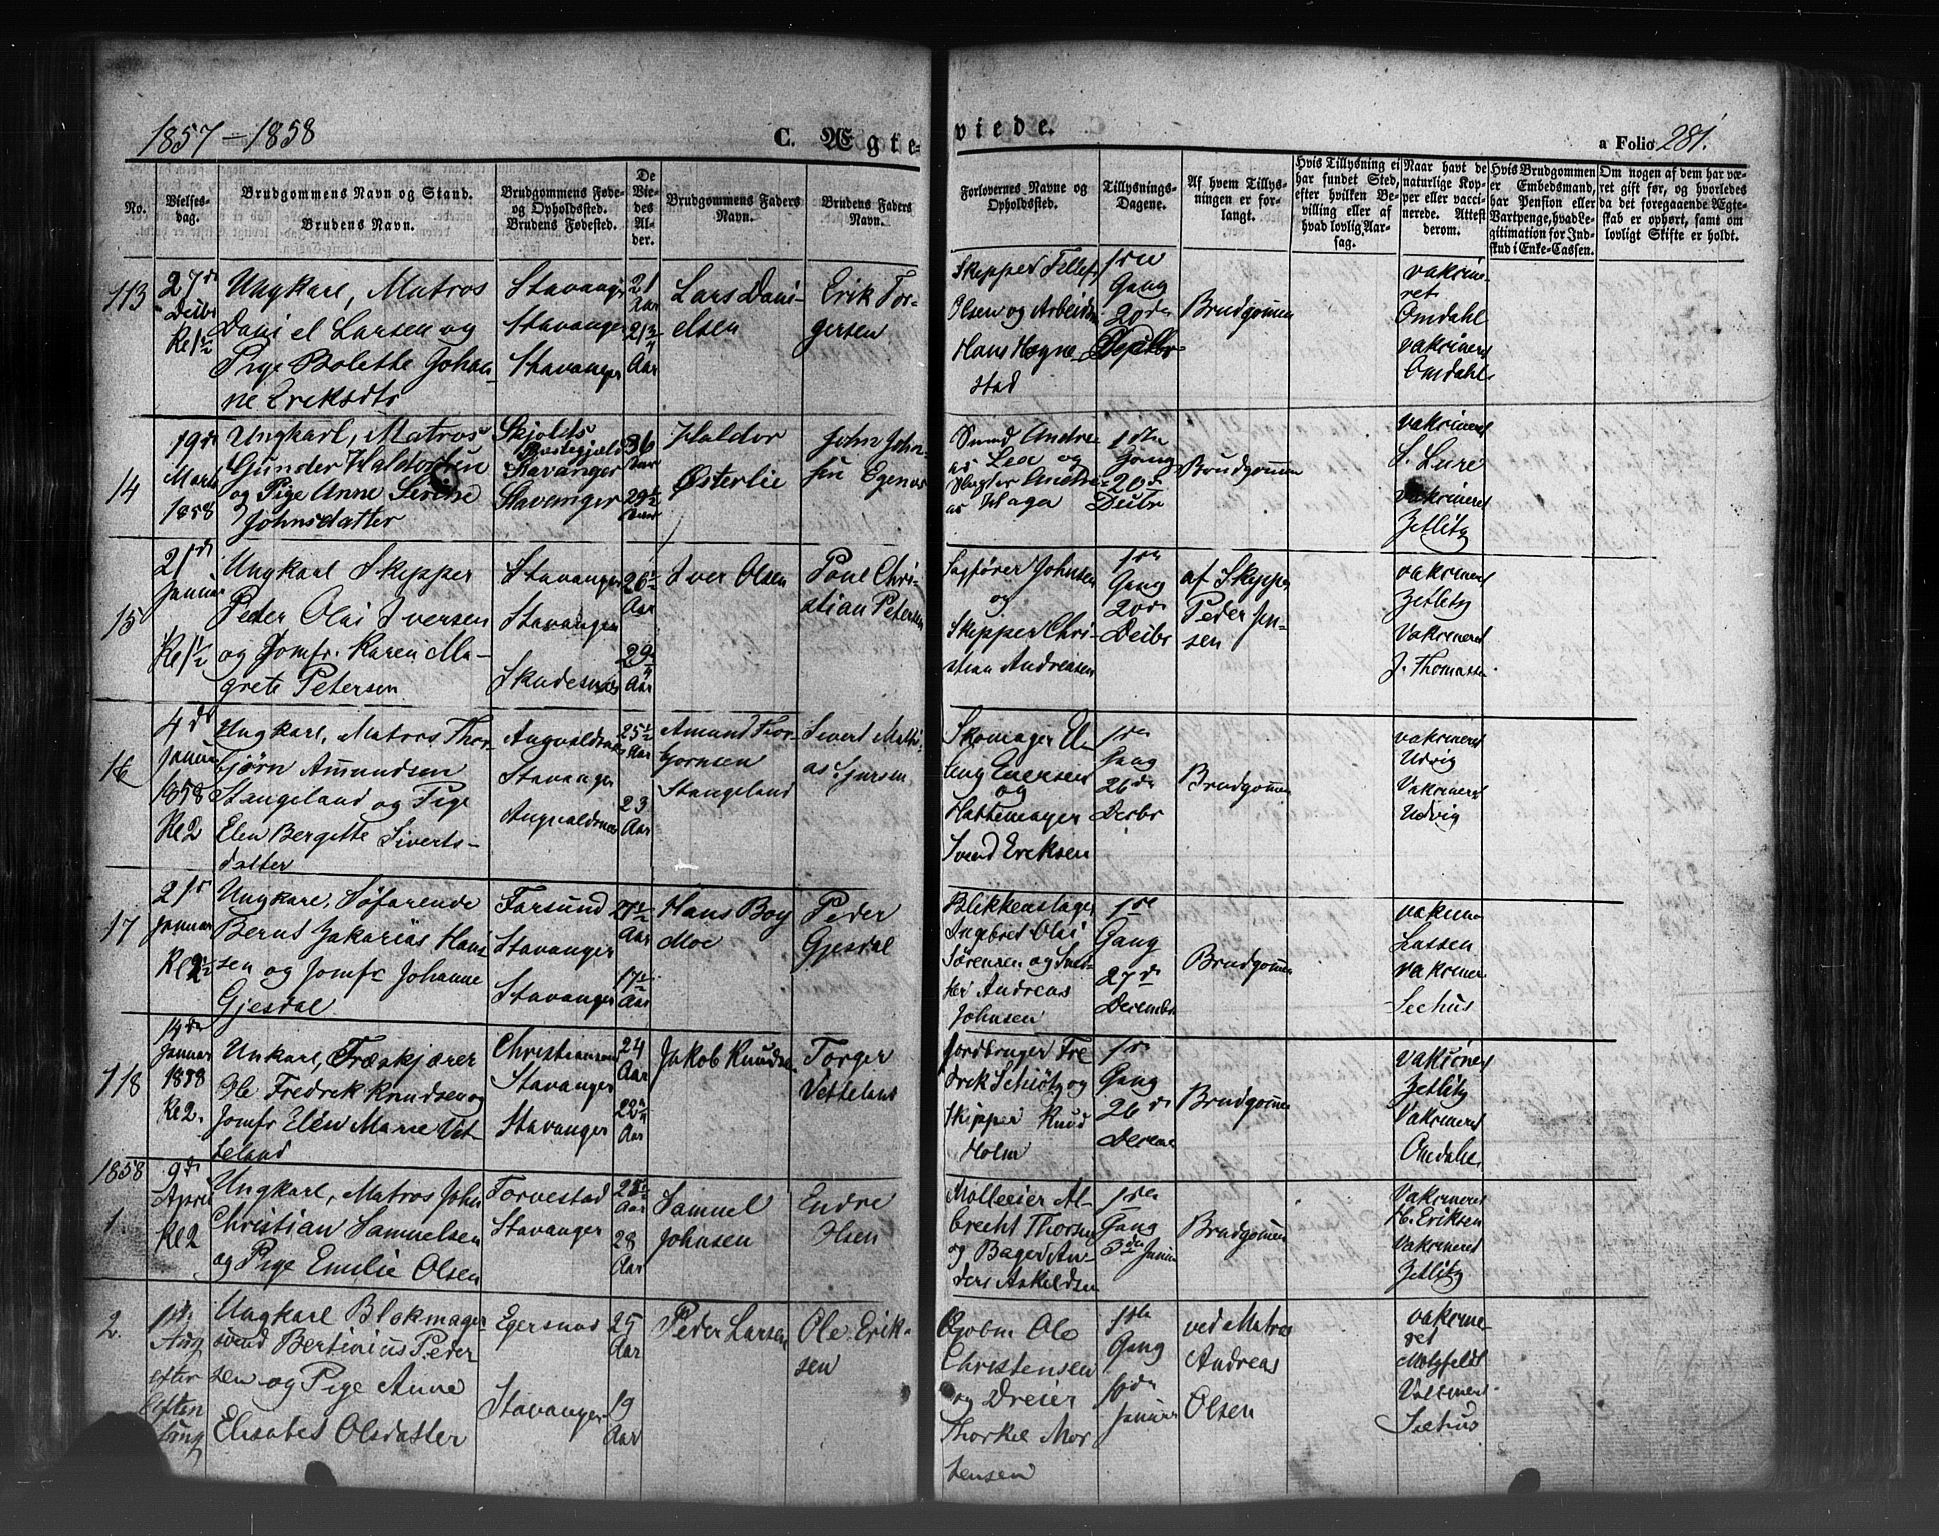 1857–1858
C. Ægteviede.
a Folio 281.
No.
Vielsesdag.
Brudgommens Navn og Stand.
Brudens Navn.
Brudgommens Føde-
og Opholdssted.
Brudens Fødested.
De
Vie-
des
Al-
der.
Brudgommens Faders
Navn.
Brudens Faders
Navn.
Forlovernes Navne og
Opholdssted.
Tillysnings-
Dagene.
Af hvem Tillys-
ningen er for-
langt.
Hvis Tillysning ei
har fundet Sted,
efter hvilken Be-
villing eller af
hvad lovlig Aar-
sag.
Naar havt de
naturlige Kop-
per eller vacci-
nerede. Attest
derom.
Hvis Brudgommen
er Embedsmand,
har Pension eller
Vartpenge, hvad Le-
gitimation for Ind-
skud i Enke-Cassen.
Om nogen af dem har væ-
ret gift før, og hvorledes
da det foregaaende Ægte-
skab er ophørt, samt om
lovligt Skifte er holdt.
113
27de
Kl 1½
Ungkarl, Matros
Daniel Larsen og
Pige Bolette Johan-
ne Eriksdtr
Stavanger
Stavanger
Stavanger
21
Aar
21¾
Aar
Lars Dani-
elsen
Erik Tor-
gersen
Skipper Tellef
Olsen og Arbeidsm
Hans Høgne-
stad
1ste
Gang
20de
Brudgommen
vakcine-
ret
Omdahl
vakcineret
Omdahl
14
19de
Marts
1858
Ungkarl, Matros
Gunder Haldorsen
og Pige Anne Serine
Johnsdatter
Skjolds
Præstegjeld
Stavanger
Stavanger
36
Aar
29½
Aar
Haldor
Østerlie
John John-
sen Egenes
Smed Andre-
as Lea og
Andre-
as Haga
1ste
Gang
20de
Brudgommen
vakcineret
vakcineret
Zetlitz
15
21de
Januar
Kl 1½
Ungkarl Skipper
Peder Olai Iversen
og Jomfr. Karen Ma-
grete Petersen
Stavanger
Stavanger
Skudesnæs
26½
Aar
29
Aar
Iver Olsen
Poul Chri-
stian Petersen
Sagfører Johnsen
og
Skipper Chri-
stian Andreasen
1ste
Gang
20de
af Skipper
Peder Jen-
sen
vakcineret
Zetlitz
Vakcineret
J. Thomassen
16
4de
Januar
1858
Kl 2
Ungkarl, Matros Thor-
bjørn Amundsen
Stangeland og Pige
Elen Bergitte Siverts-
datter
Augvaldsnæs
Stavanger
Augvaldsnæs
25½
Aar
23
Aar
Amund Thor-
bjørnsen
Stangeland
Sivert Mathi-
as Iversen
Skomager
og
Hattemager
Svend Eriksen
1ste
Gang
26de
Decbr
Brudgommen
vakcineret
Udvig
Vakcineret
Udvig
17
21de
Januar
Kl 2½
Ungkarl, Søfarende
Bernt Zakarias Han-
sen og Jomfr Johanne
Gjesdal
Farsund
Stavanger
Stavanger
27½
Aar
17½
Aar
Hans Boy
Moe
Peder
Gjesdal
Blikkenslager
Ingebret Olai
Sørensen og Snek-
ker Andreas
Johnsen
1ste
Gang
27de
December
Brudgommen
vakcine
Lassen
vakciner
Seehus
118
14de
Januar
1858
Kl 2.
Unkarl, Træskjærer
Ole Fredrik Knudsen og
Jomfr Elen Marie Vet-
teland
Christiansand
Stavanger
Stavanger
24
Aar
22¾
Aar
Jakob Knudsen
Torger
Vetteland
Jordbruger Fre-
drik Schiøtz og
Skipper Knud
Holm
1ste
Gang
26de
Decem
Brudgommen
Vakcineret
Zetlitz
Vakcineret
Omdahl
1858
1.
9de
April
Kl 2
Ungkarl, Matros John
Christian Samuelsen
og Pige Emilie Olsen
Torvestad
Stavanger
Aar
28
Aar
Samuel
Johnsen
Endre
Olsen
Al-
brecht Thorsen
og Bager An-
ders Askeldsen
1ste
Gang
3die Januar
Brudgommen
Vakcineret
H. Eriksen
Vakcineret
Zetlitz
2.
Aug
efter
Aften
sang
Ungkarl Blokmager-
svend Bertinius Peder
sen og Pige Anne
Elisabet Olsdatter
Egersund
Stavanger
25
Aar
19
Aar
Peder Larsen
Ole Erik-
sen
Ole
Christensen
og Dreier
Thorkel Mor
tensen
1ste
Gang
10de
Januar
ved Matros
Andreas
Olsen
vakcine-
ret
Motzfeldt
Vakcineret
Seehus